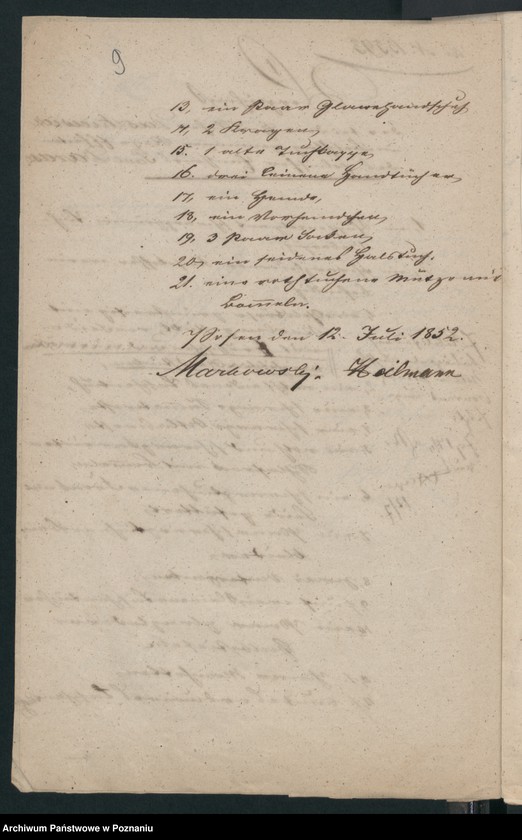 9
13, ein Paar Glacehandschuh
14, 2 Kragen,
15. 1 alte Tuchkappe,
16. drei leinene Handtücher,
17, ein Hemde,
18, ein Vorhemdchen,
19, 3 Paar Socken,
20, ein seidenes Halstuch.
21. eine rothtuchene Mütze mit
Bömmeln.
Posen den 12. Juli 1852.
Markowski. Heilmann
Archiwum Państwowe w Poznaniu